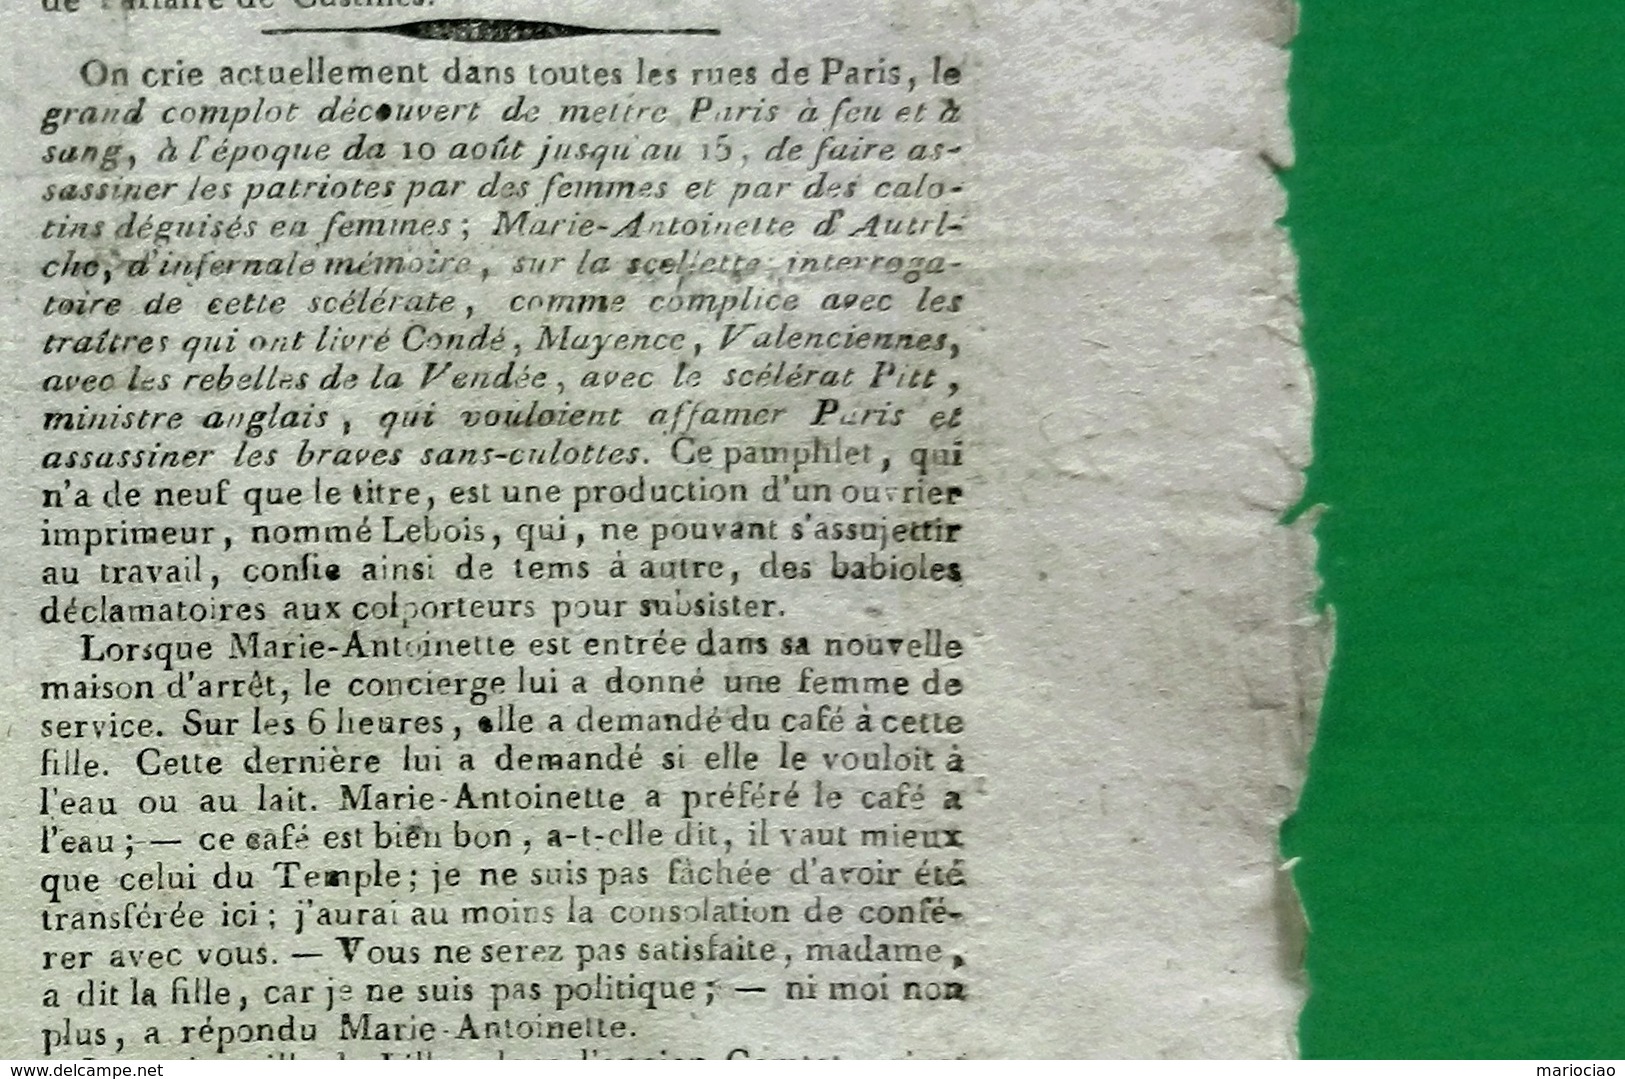 de l'affaire de Custines.
On crie actuellement dans toutes les rues de Paris, le
grand complot découvert de mettre Paris à feu et à
sang, à l'époque da 10 août jusqu'au 15, de faire as-
sassiner les patriotes par des femmes et par des calo-
tins déguisés en femmes; Marie-Antoinette d'Autrl-
che, d'infernale mémoire, sur la scellette; interroga-
toire de cette scélérate, comme complice avec les
traîtres qui ont livré Condé, Mayence, Valenciennes,
avec les rebelles de la Vendée, avec le scélérat Pitt,
ministre anglais, qui vouloient affamer Paris et
assassiner les braves sans-culottes. Ce pamphlet, qui
n'a de neuf que le titre, est une production d'un ouvrier
imprimeur, nommé Lebois, qui, ne pouvant s'assujettir
au travail, confie ainsi de tems à autre, des babioles
déclamatoires aux colporteurs pour subsister.
Lorsque Marie-Antoinette est entrée dans sa nouvelle
maison d'arrêt, le concierge lui a donné une femme de
service. Sur les 6 heures, elle a demandé du café à cette
fille. Cette dernière lui a demandé si elle le vouloit à
l'eau ou au lait. Marie-Antoinette a préféré le café a
l'eau; — ce café est bien bon, a-t-elle dit, il vaut mieux
que celui du Temple; je ne suis pas fâchée d'avoir été
transférée ici; j'aurai au moins la consolation de confé-
rer avec vous. — Vous ne serez pas satisfaite, madame,
a dit la fille, car je ne suis pas politique; — ni moi non
plus, a répondu Marie-Antoinette.
www.delcampe.net
mariociao